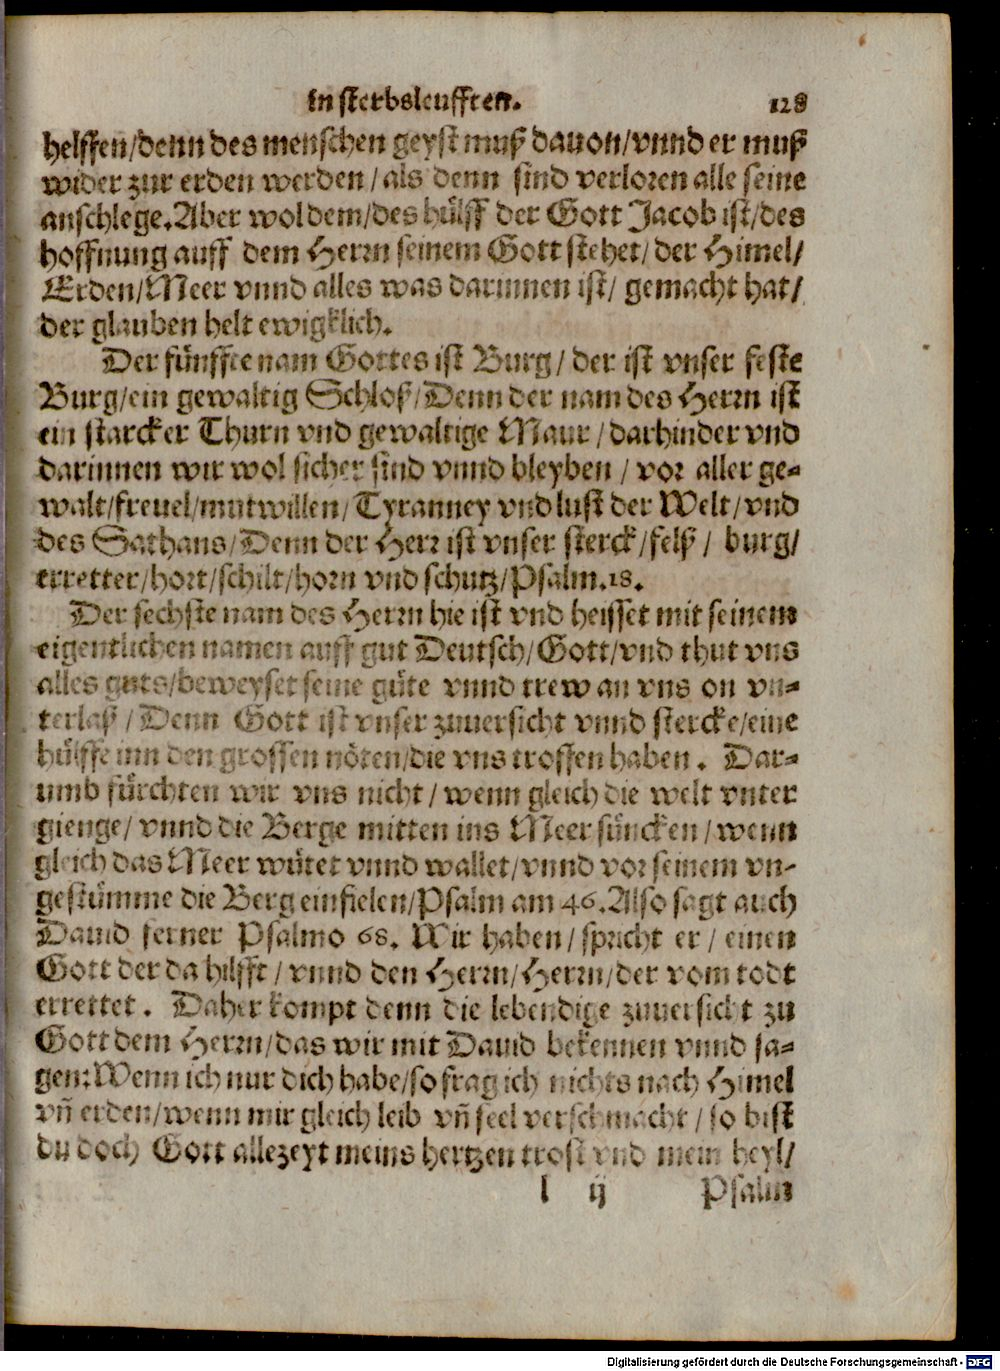 in sterbsleufften. 128
helffen/denn des menschen geyst muß dauon/vnnd er muß
wider zur erden werden/als denn sind verloren alle seine
anschlege. Aber wol dem/des hülff der Gott Jacob ist/des
hoffnung auff dem Herrn seinem Gott stehet/der Himel/
Erden/Meer vnnd alles was darinnen ist/gemacht hat/
der glauben helt ewigklich.
Der fünffte nam Gottes ist Burg/der ist vnser feste
Burg/ein gewaltig Schloß/Denn der nam des Herrn ist
ein starcker Thurn vnd gewaltige Maur/darhinder vnd
darinnen wir wol sicher sind vnnd bleyben/vor aller ge-
walt/freuel/mutwillen/Tyranney vnd lust der Welt/vnd
des Sathans/Denn der Herr ist vnser sterck/felß/burg/
erretter/hort/schilt/horn vnd schutz/Psalm.18.
Der sechste nam des Herrn hie ist vnd heisset mit seinem
eigentlichen namen auff gut Deutsch/Gott/vnd thut vns
alles guts/beweyset seine güte vnnd trew an vns on vn-
terlaß/Denn Gott ist vnser zuuersicht vnnd stercke/eine
hülffe inn den grossen nöten/die vns troffen haben. Dar-
umb fürchten wir vns nicht/wenn gleich die welt vnter
gienge/vnnd die Berge mitten ins Meer süncken/wenn
gleich das Meer wütet vnnd wallet/vnnd vor seinem vn-
gestümme die Berg einfielen/Psalm am 46. Also sagt auch
Dauid ferner Psalmo 68. Wir haben/spricht er/einen
Gott der da hilfft/vnnd den Herrn/Herrn/der vom todt
errettet. Daher kompt denn die lebendige zuuersicht zu
Gott dem Herrn/das wir mit Dauid bekennen vnnd sa-
gen: Wenn ich nur dich habe/so frag ich nichts nach Himel
vñ erden/wenn mir gleich leib vñ seel verschmacht/so bist
du doch Gott allezeyt meins hertzen trost vnd mein heyl/
l ij Psalm
Digitalisierung gefördert durch die Deutsche Forschungsgemeinschaft - DFG